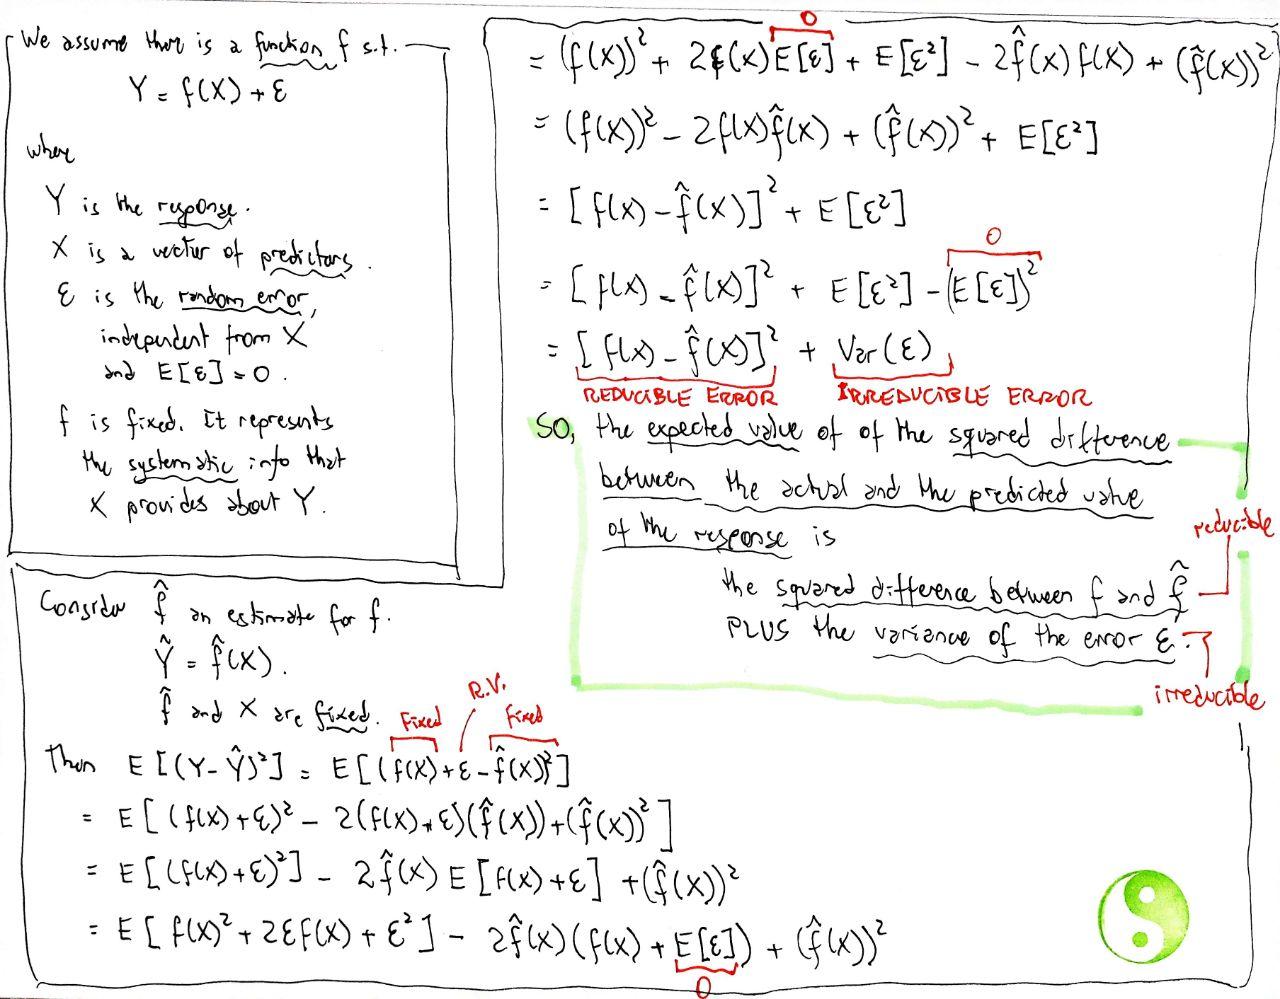 We assume there is a function f s.t.
Y = f(X) + ε
where
Y is the response.
X is a vector of predictors.
ε is the random error,
independent from X
and E[ε] = 0.
f is fixed. It represents
the systematic info that
X provides about Y.
Consider f̂ an estimate for f.
Ŷ = f̂(X).
f̂ and X are fixed.
Fixed R.V. Fixed
Then E[(Y-Ŷ)²] = E[(f(X)+ε-f̂(X))²]
= E[(f(X)+ε)² - 2(f(X)+ε)(f̂(X))+(f̂(X))²]
= E[(f(X)+ε)²] - 2f̂(X) E[f(X)+ε] +(f̂(X))²
= E[f(X)²+2εf(X)+ε²] - 2f̂(X)(f(X)+E[ε]) + (f̂(X))²
0
0
= (f(X))² + 2f(X)E[ε] + E[ε²] - 2f̂(X)f(X) + (f̂(X))²
= (f(X))² - 2f(X)f̂(X) + (f̂(X))² + E[ε²]
= [f(X)-f̂(X)]² + E[ε²]
0
= [f(X)-f̂(X)]² + E[ε²] - (E[ε])²
= [f(X)-f̂(X)]² + Var(ε)
REDUCIBLE ERROR IRREDUCIBLE ERROR
SO, the expected value of of the squared difference
between the actual and the predicted value
of the response is
reducible
the squared difference between f and f̂
PLUS the variance of the error ε.
irreducible